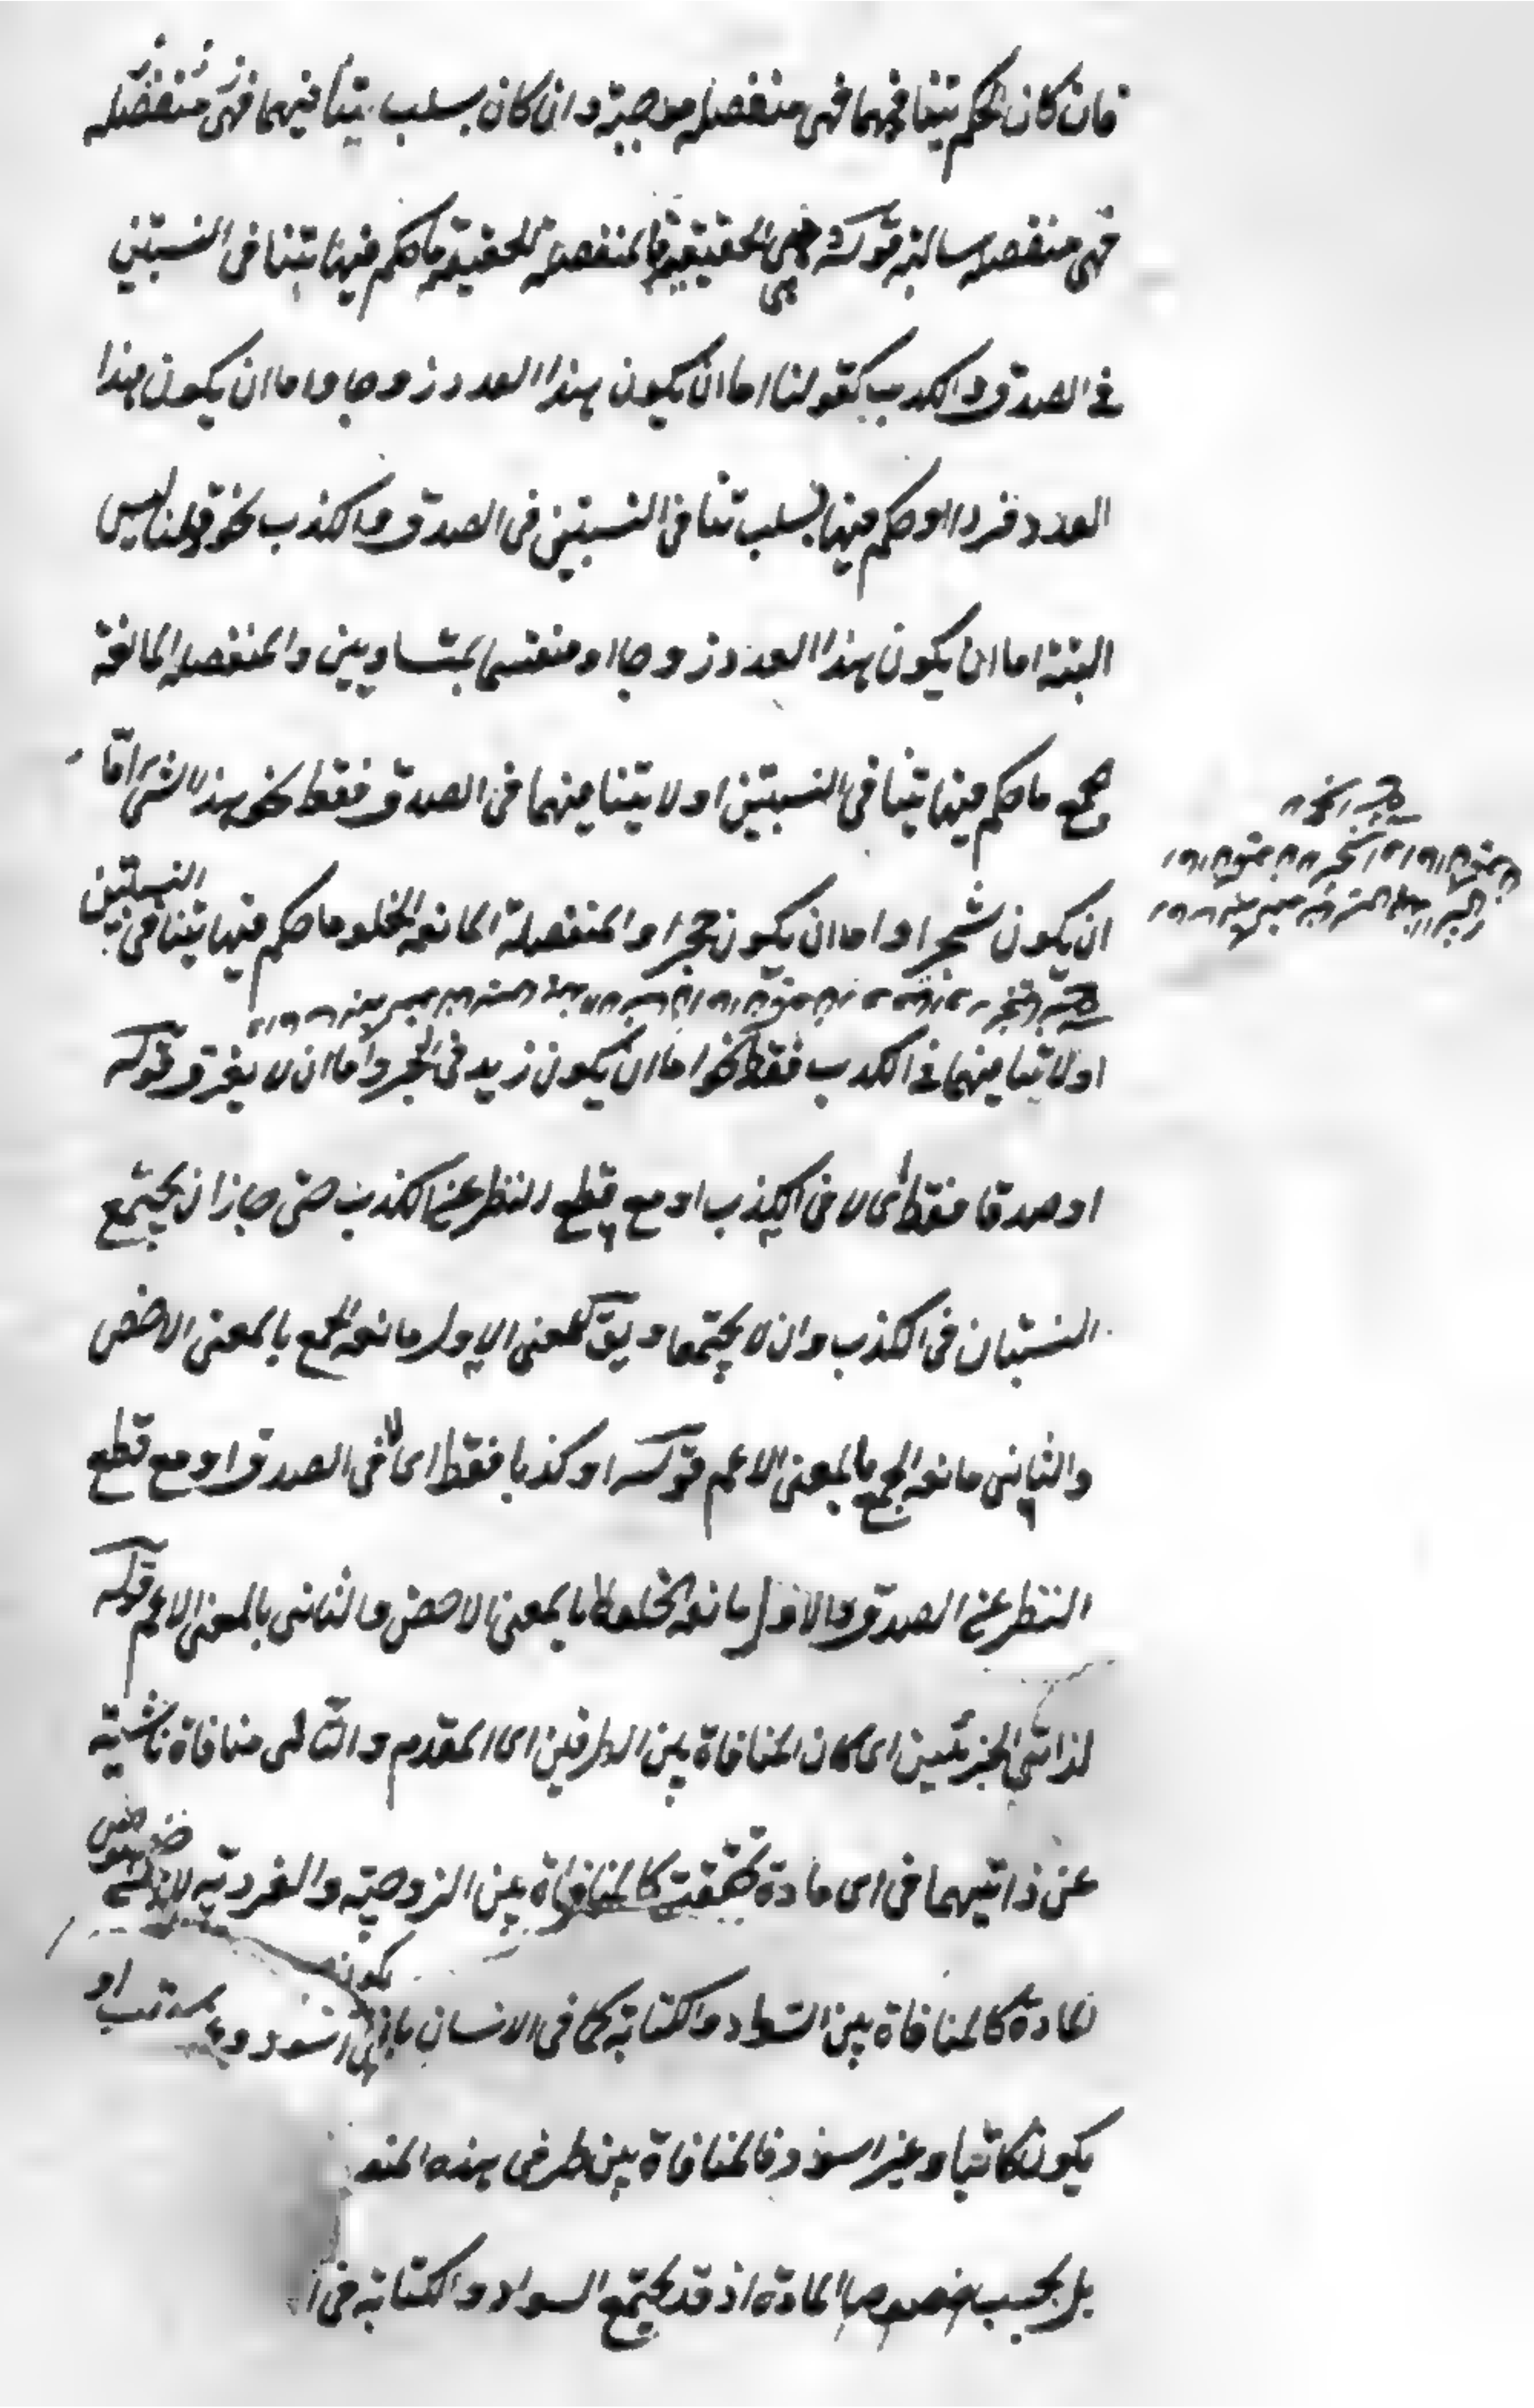 فان كان الحكم بتنافيهما فهى منفصله موجبة وان كان بسلب تنافيهما فهى منفصله
فهى منفصله سالبة قوله وهى الحقيقية فالمنفصلة الحقيقية ما حكم فيها بتنافى النسبتين
فى الصدق والكذب كقولنا اما ان يكون هذا العدد زوجا واما ان يكون هذا
العدد فردا او حكم فيها بسلب تنافى النسبتين فى الصدق والكذب نحو قولنا ليس
البتة اما ان يكون هذا العدد زوجا او منقسما بمتساويين والمنفصله المانعة
جمع ما حكم فيها بتنافى النسبتين او لا تنافيهما فى الصدق فقط نحو هذا الشئ اما
ان يكون شجرا واما ان يكون حجرا والمنفصلة المانعة الخلو ما حكم فيها بتنافى النسبتين
او لا تنافيهما فى الكذب فقط نحو اما ان يكون زيد فى البحر واما ان لا يغرق قوله
او صدقا فقط اى لا فى الكذب او مع قطع النظر عن الكذب حتى جاز ان يجتمع
النسبتان فى الكذب وان لا يجتمعا ويق للمعنى الاول مانعة الجمع بالمعنى الاخص
والثانى مانعة الجمع بالمعنى الاعم قوله او كذبا فقط اى لا فى الصدق او مع قطع
النظر عن الصدق والاول مانعة الخلو بالمعنى الاخص والثانى بالمعنى الاعم قوله
لذاتى الجزئين اى كان المنافاة بين الطرفين اى المقدم والتالى منافاة ناشية
عن ذاتيهما فى اى مادة تحققت كالمنافاة بين الزوجية والفردية لا
لمادة كالمنافاة بين السواد والكتابة كما فى الانسان يكون اسود و او
يكون كاتبا وغير اسود فالمنافاة بين طرفى هذه المنف
بل بحسب خصوص المادة اذ قد يجتمع السواد والكتابة فى ا